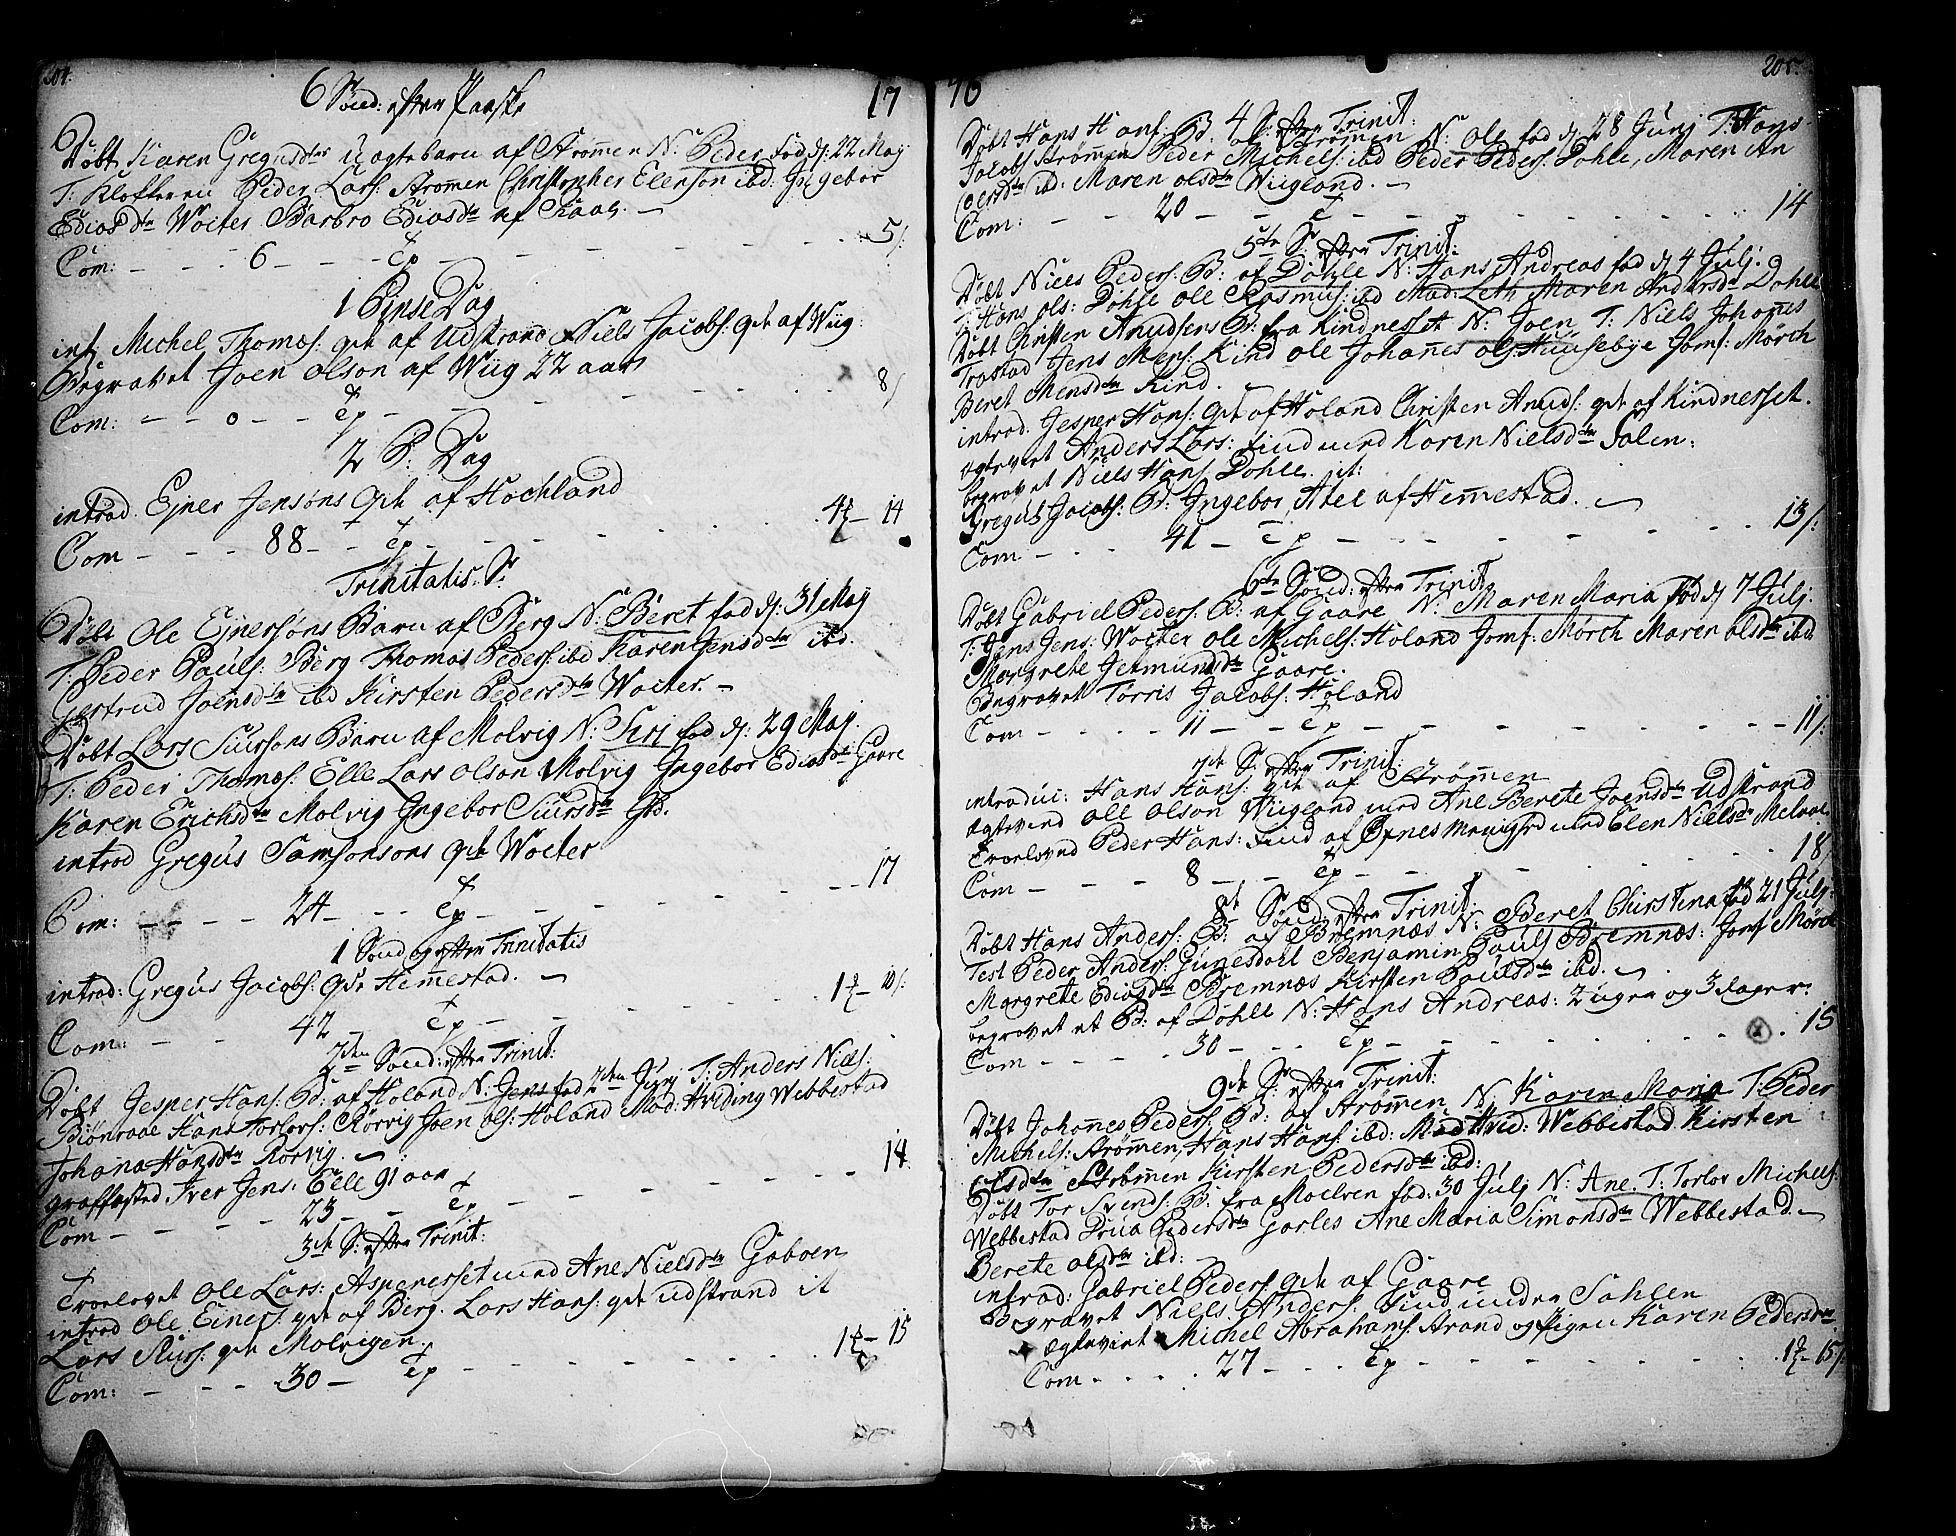 204.
17
6 Sønd: efter Paaske
Døbt Karen Gregusdtrs Uægtebarn af Strømen N: Peder fød d: 22 Maj
T: Klokkeren Peder Lars: Strømen Christopher Elenson ibd: Ingebor
Ediasdtr Wolter Barbro Ediasdtr af
Com: - - - 6 - - - - 5/:
1 Pinse Dag
int Michel Thomæs: qvt af Udstrand Niels Jacobs: qvt af Wiig:
Begravet Joen Olson af Wiig 22 aar
Com: - - 0 - - - 8/
2 P: Dag
introd. Ejner Jensøns qvt af Hochland
Com - - - 88 - - - 14
Trinitatis: S:
Døbt Ole Ejnersøns Barn af Berg N: Beret fød d: 31 Maj
T: Peder Pauls: Berg Thomas Peders: ibd Karen Jensdtr ibd:
Giertrud Joensdtr ibd Kirsten Pedersdtr Wolter. -
Døbt Lars Siursons Barn af Molvig N: Siri fød d: 29 Maj
T: Peder Thomæs: Elle Lars Olson Molvig Ingebor Ediasdtr Gaare
Karen Erichsdtr Molvig Ingebor Siursdtr
introd Gregus Samsonsons qvt Wolter
Com: - - - 24 - - - 17
1 Sønd: efter Trinitatis
introd: Gregus Jacobs: qvt Hemestad. -
Com: - - 42 - - 10/:
2den Sønd: efter Trinit:
Døbt Jesper Hans: B: af Holand N: Jens fød 2den Junj T: Anders Niels:
Hans Torlors: Rørvig Joen Ols: Holand Mad: Hviding Webbestad
Johana Hansdtr Rørvig. -
graffæsted Iver Jens: Eelle 91 aar
Com - - - 23 - - - 14
3de S: efter Trinit:
Troelovet Ole Lars: Aspeneset med Ane Nielsdtr Gaboen
introd Ole Einers: qvt af Berg. Lars Hans: qvt udstrand it
Lars Siurs: qvt Molvigen.
Com: - - - 30 - - - 15
70
205.
4 S: efter Trinit:
Døbt Hans Hans: B: af Strømen N: Ole fød d 28 Junj T: Hans
Jacobs: Strømen Peder Michels: ibd Peder Peders: Dohle, Maren An
dersdtr ibd: Maren Olsdtr Wiigland. -
Com: - - 20 - - - 14
5te S: efter Trinit:
Døbt Niels Peders: B: af Døhle N: Hans Andreas fød d 4 Julj:
T: Hans Ols: Døhle Ole Rasmus: ibd Mad: Leth Maren Andersdtr Dohle
Døbt Christen Knudsens B: fra Kindnesset N: Joen T: Niels Johañes
Trastad Jens Mens: Kind Ole Johañes Ols: Huusebye Jomf: Mørch
Beret Mensdtr Kind.
introd. Jesper Hans: qvt af Holand Christen Knuds: qvt af Kindnesset.
ægteviet Anders Lars: Lind med Karen Nielsdtr Salen:
begravet Niels Hans: Dohle. it:
Gregus Jacobs: B: Ingebor Atel af Hemestad. -
Com - - - 41 - - - 13/:
6te Sønd: efter Trinit:
Døbt Gabriel Peders: B: af Gaare N: Maren Maria fød d 7 Julj:
T: Jens Jens: Wolter Ole Michels: Holand Jomf: Mørch Maren Olsdtr ibd
Margrete Jetmundsdtr Gaare.
Begravet Torris Jacobs: Holand
Com - - - 11 - - - 11/:
7de S: efter Trinit:
introdu: Hans Hans: qvt af Strømen
Ægtevied Ole Olson Wiigland med Ane Berete Joensdtr Udstrand
Troelovet Peder Hans: Lind af Øxnes Menighed med Elen Nielsdtr
Com - - - 8 - - - 18/
8de Sønd: efter Trinit:
Døbt Hans Anders: B: af Bremnæs N: Beret Christina fød 21 Julj
Test Peder Anders: Benjamin Pauls Bremnæs: Jomf Mørch
Margrete Ediasdtr Bremnæs Kirsten Paulsdtr ibd. -
begravet et B: af Døhle N: Hans Andreas: 2 uger og 3 dager.
Com - - - 30 - - - 15
9de S: efter Trinit:
Døbt Johañes Peders: B: af Strømen N: Karen Maria T: Peder
Michels: Strømen, Hans Hans: ibd: Mad Hvid: Webbestad Kirsten
Elsdtr Strømen Kirsten Pedersdtr ibd:
Døbt Tor Svends: B: fra Moelven fød: 30 Julj N: Ane. T: Torlov Michels:
Webbestad Drüa Pedersdtr Garles Ane Maria Simonsdtr Webbestad. -
Berete Olsdtr ibd: -
introd: Gabriel Peders: qvt af Gaare
Begravet Niels Anders: Lind under Sahlen
Ægteviet Michel Abrahams: Strand og Pigen Karen Pedersdtr
Com - - - 27 - - - 15/: